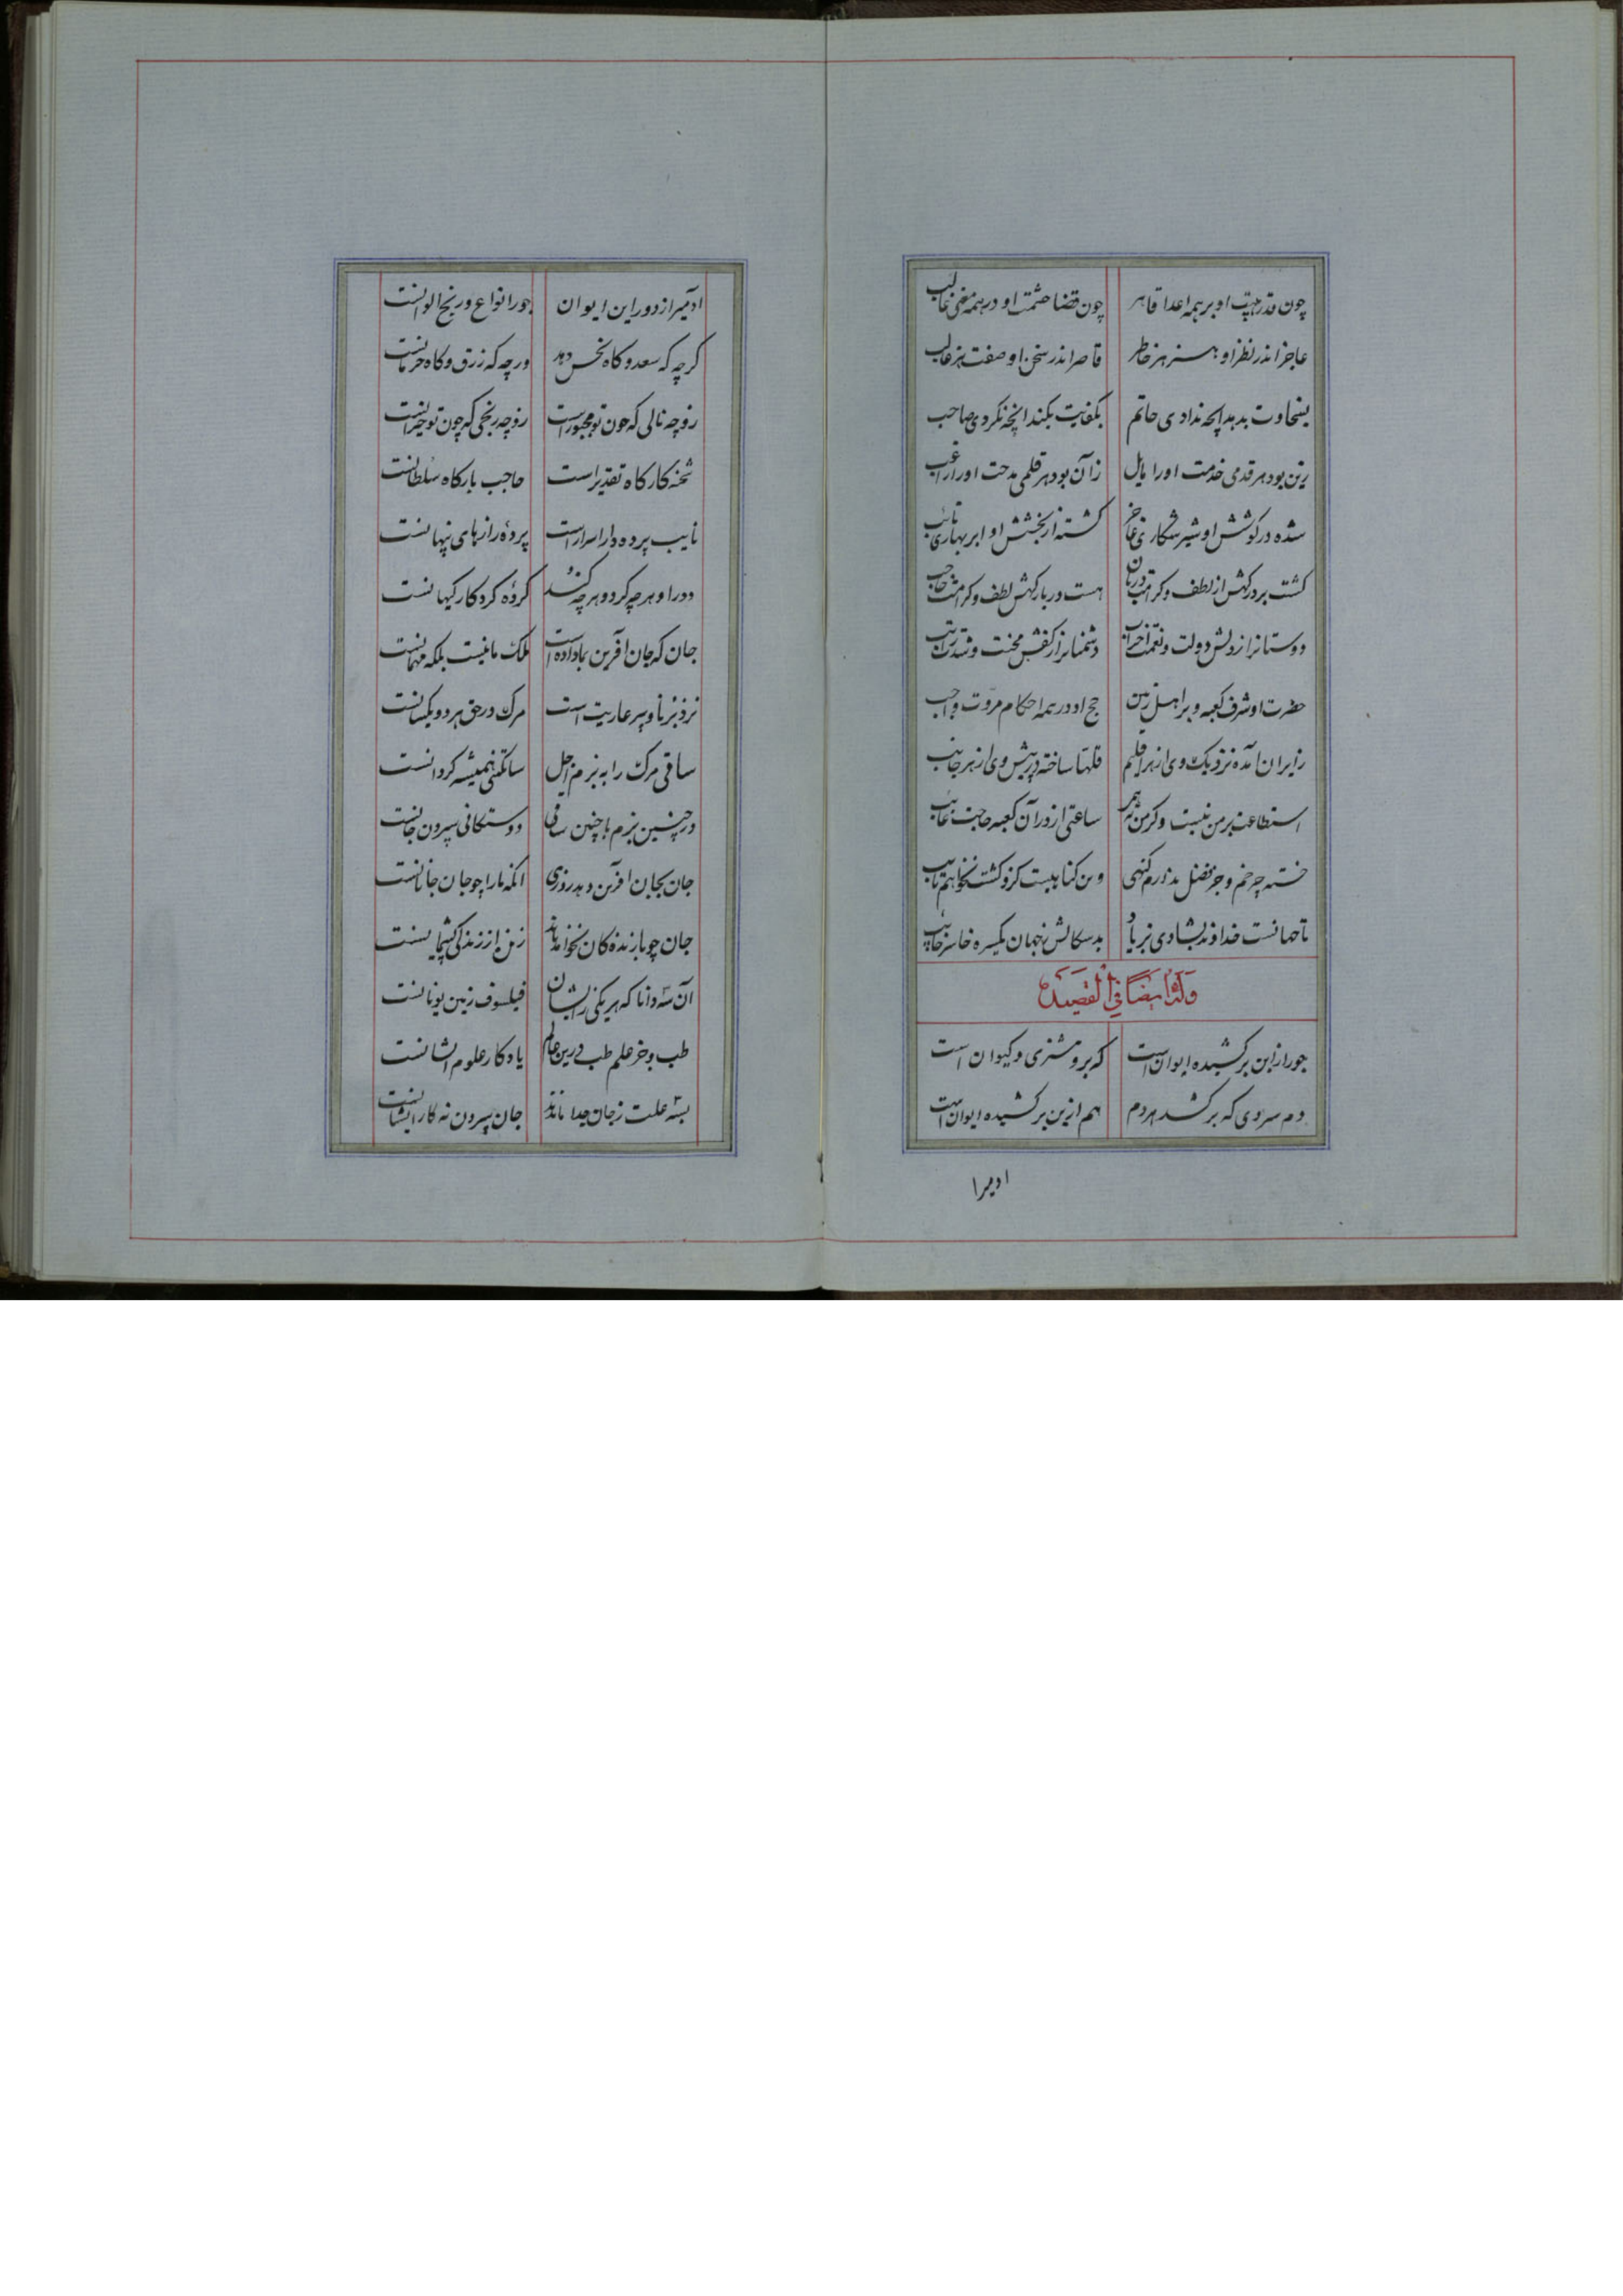 چون قدر هیبت او بر همه اعدا قاهر چون قضا حشمت او در همه معنی غالب
عاجز اندر نظر او هنر هر خاطر قاصر اندر سخن او صفت هر
بسخاوت بدهد آنچه ندادی حاتم بکفایت بکند آنچه نکردی صاحب
زین بود هر قدمی خدمت او را مایل زان بود هر قلمی مدحت او را راغب
شده در کوشش او شیر شکاری عاجز کشته از بخشش او ابر بهاری تائب
کشت بر درکهش از لطف و کرامت دربان هست در بارکهش لطف و کرامت حاجب
دوستانرا ز دولت و نعمت دشمنانرا ز محنت و شدت
حضرت او شرف کعبه و بر اهل زمین حج او در همه احکام مروت واجب
ز ایران آمده نزدیک وی از هر اقلیم ساخته در پیش وی از هر جانب
استطاعت بر من نیست وکر من ساعتی از در آن کعبه حاجت غائب
خسته چرخم و جز فضل ندارم کنهی وین کناهیست کزو کشت نخواهم تایب
تا جهانست خداوند بشادی بزیاد بدسکالش ز جهان یکسره خاسر خایب
وله ایضا فی القصیده
جور ازین برکشیده ایوان است که برو مشتری و کیوان است
دم سردی که برکشد هر دم هم ازین برکشیده ایوان است
ادمیرا
ادمیرا ز دور این ایوان جور انواع و رنج الوانست
کرچه که سعد و کاه نحس دهد ورچه که زرق و کاه حرمانست
زو چه نالی که چون تو مجبور است زو چه رنجی که چون تو حیرانست
شحنه کارکاه تقدیر است حاجب بارکاه سلطانست
نایب پرده دار اسرار است پرده رازهای پنهانست
دور او هر چه کرد و هر چه کند کرده کردکار کیهانست
جان که جان آفرین بما داده است ملک ما نیست بلکه مهمانست
نزد برنا و پیر عاریت است مرک در حق هر دو یکسانست
ساقی مرک را به بزم اجل ساتکینی همیشه کردانست
در چنین بزم با چنین ساقی دوستکانی سپردن جانست
جان بجان افرین دهد روزی انکه ما را چو جان جانانست
جان چو با زنده کان نخواهد ماند زنده از زندکی پشیمانست
آن سه دانا که هر یکی زایشان فیلسوف زمین یونانست
طب و جز علم طب درین عالم یادکار علوم ایشانست
بسته علت ز جان جدا ماندند جان سپردن نه کار ایشانست